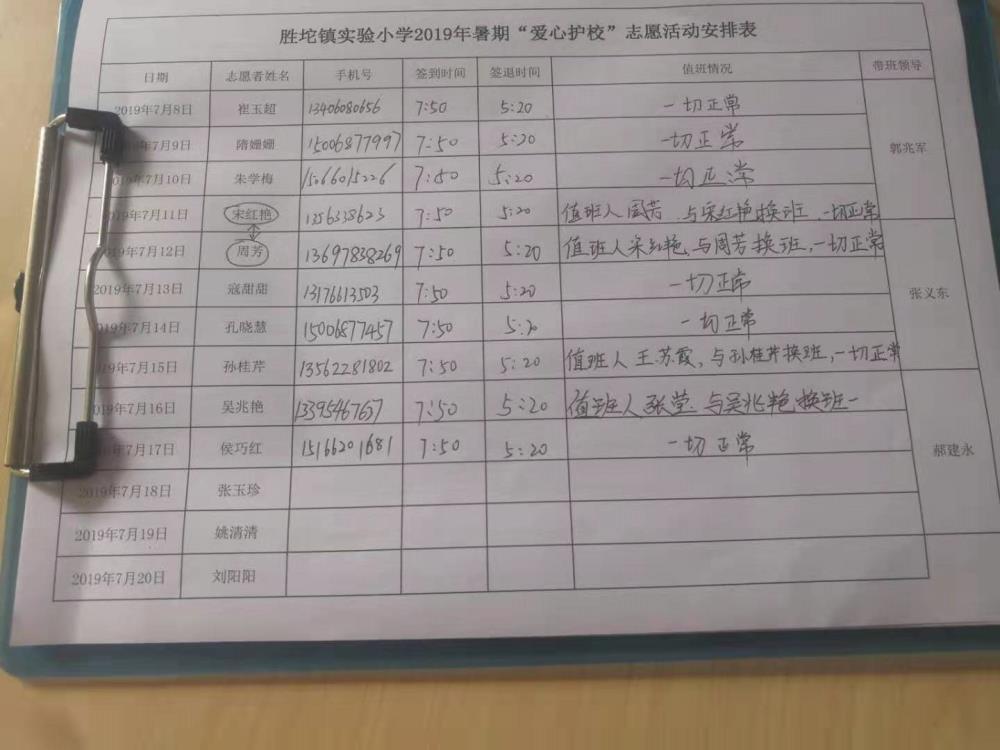 胜坨镇实验小学2019年暑期“爱心护校”志愿活动安排表
日期 志愿者姓名 手机号 签到时间 签退时间 值班情况 带班领导
2019年7月8日 崔玉超 13406080656 7:50 5:20 一切正常
年7月9日 隋姗姗 15006877997 7:50 5:20 一切正常 郭兆军
2019年7月10日 朱学梅 15066015226 7:50 5:20 一切正常
2019年7月11日 宋红艳 1356338623 7:50 5:20 值班人 周芳 与宋红艳换班 一切正常
2019年7月12日 周芳 13697838269 7:50 5:20 值班人宋红艳,与周芳换班,一切正常
2019年7月13日 寇甜甜 13176613503 7:50 5:20 一切正常 张义东
2019年7月14日 孔晓慧 15006877457 7:50 5:20 一切正常
2019年7月15日 孙桂芹 13562281802 7:50 5:20 值班人 王苏霞,与孙桂芹换班,一切正常
2019年7月16日 吴兆艳 13395467637 7:50 5:20 值班人张莹.与吴兆艳换班一
年7月17日 侯巧红 15166201681 7:50 5:20 一切正常 郝建永
2019年7月18日 张玉珍
2019年7月19日 姚清清
2019年7月20日 刘阳阳